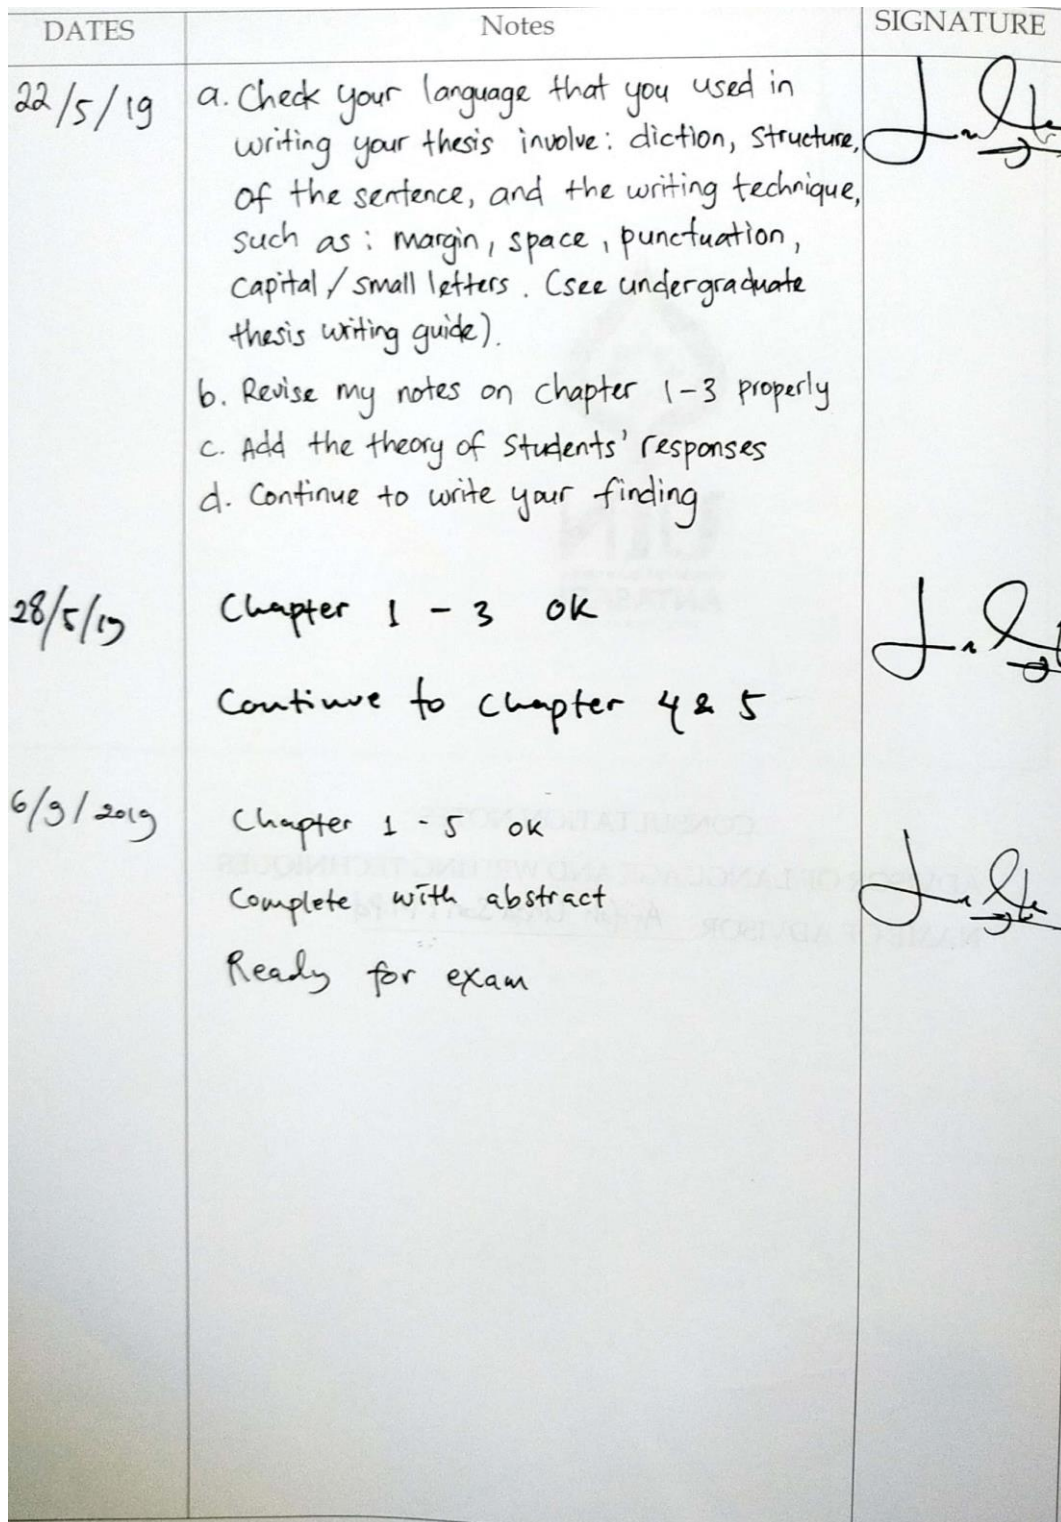 DATES Notes SIGNATURE
22/5/19 a. Check your language that you used in
writing your thesis involve: diction, structure,
of the sentence, and the writing technique,
such as: margin, space, punctuation,
capital / small letters. (see undergraduate
thesis writing guide).
b. Revise my notes on chapter 1-3 properly
c. Add the theory of Students' responses
d. Continue to write your finding
28/5/19 Chapter 1 - 3 ok
Continue to chapter 4 & 5
6/9/2019 Chapter 1 - 5 ok
Complete with abstract
Ready for exam
UIN
ANTASARI
CONSULTATION NOTES
ADVISOR OF LANGUAGE AND WRITING TECHNIQUES
NAME OF ADVISOR